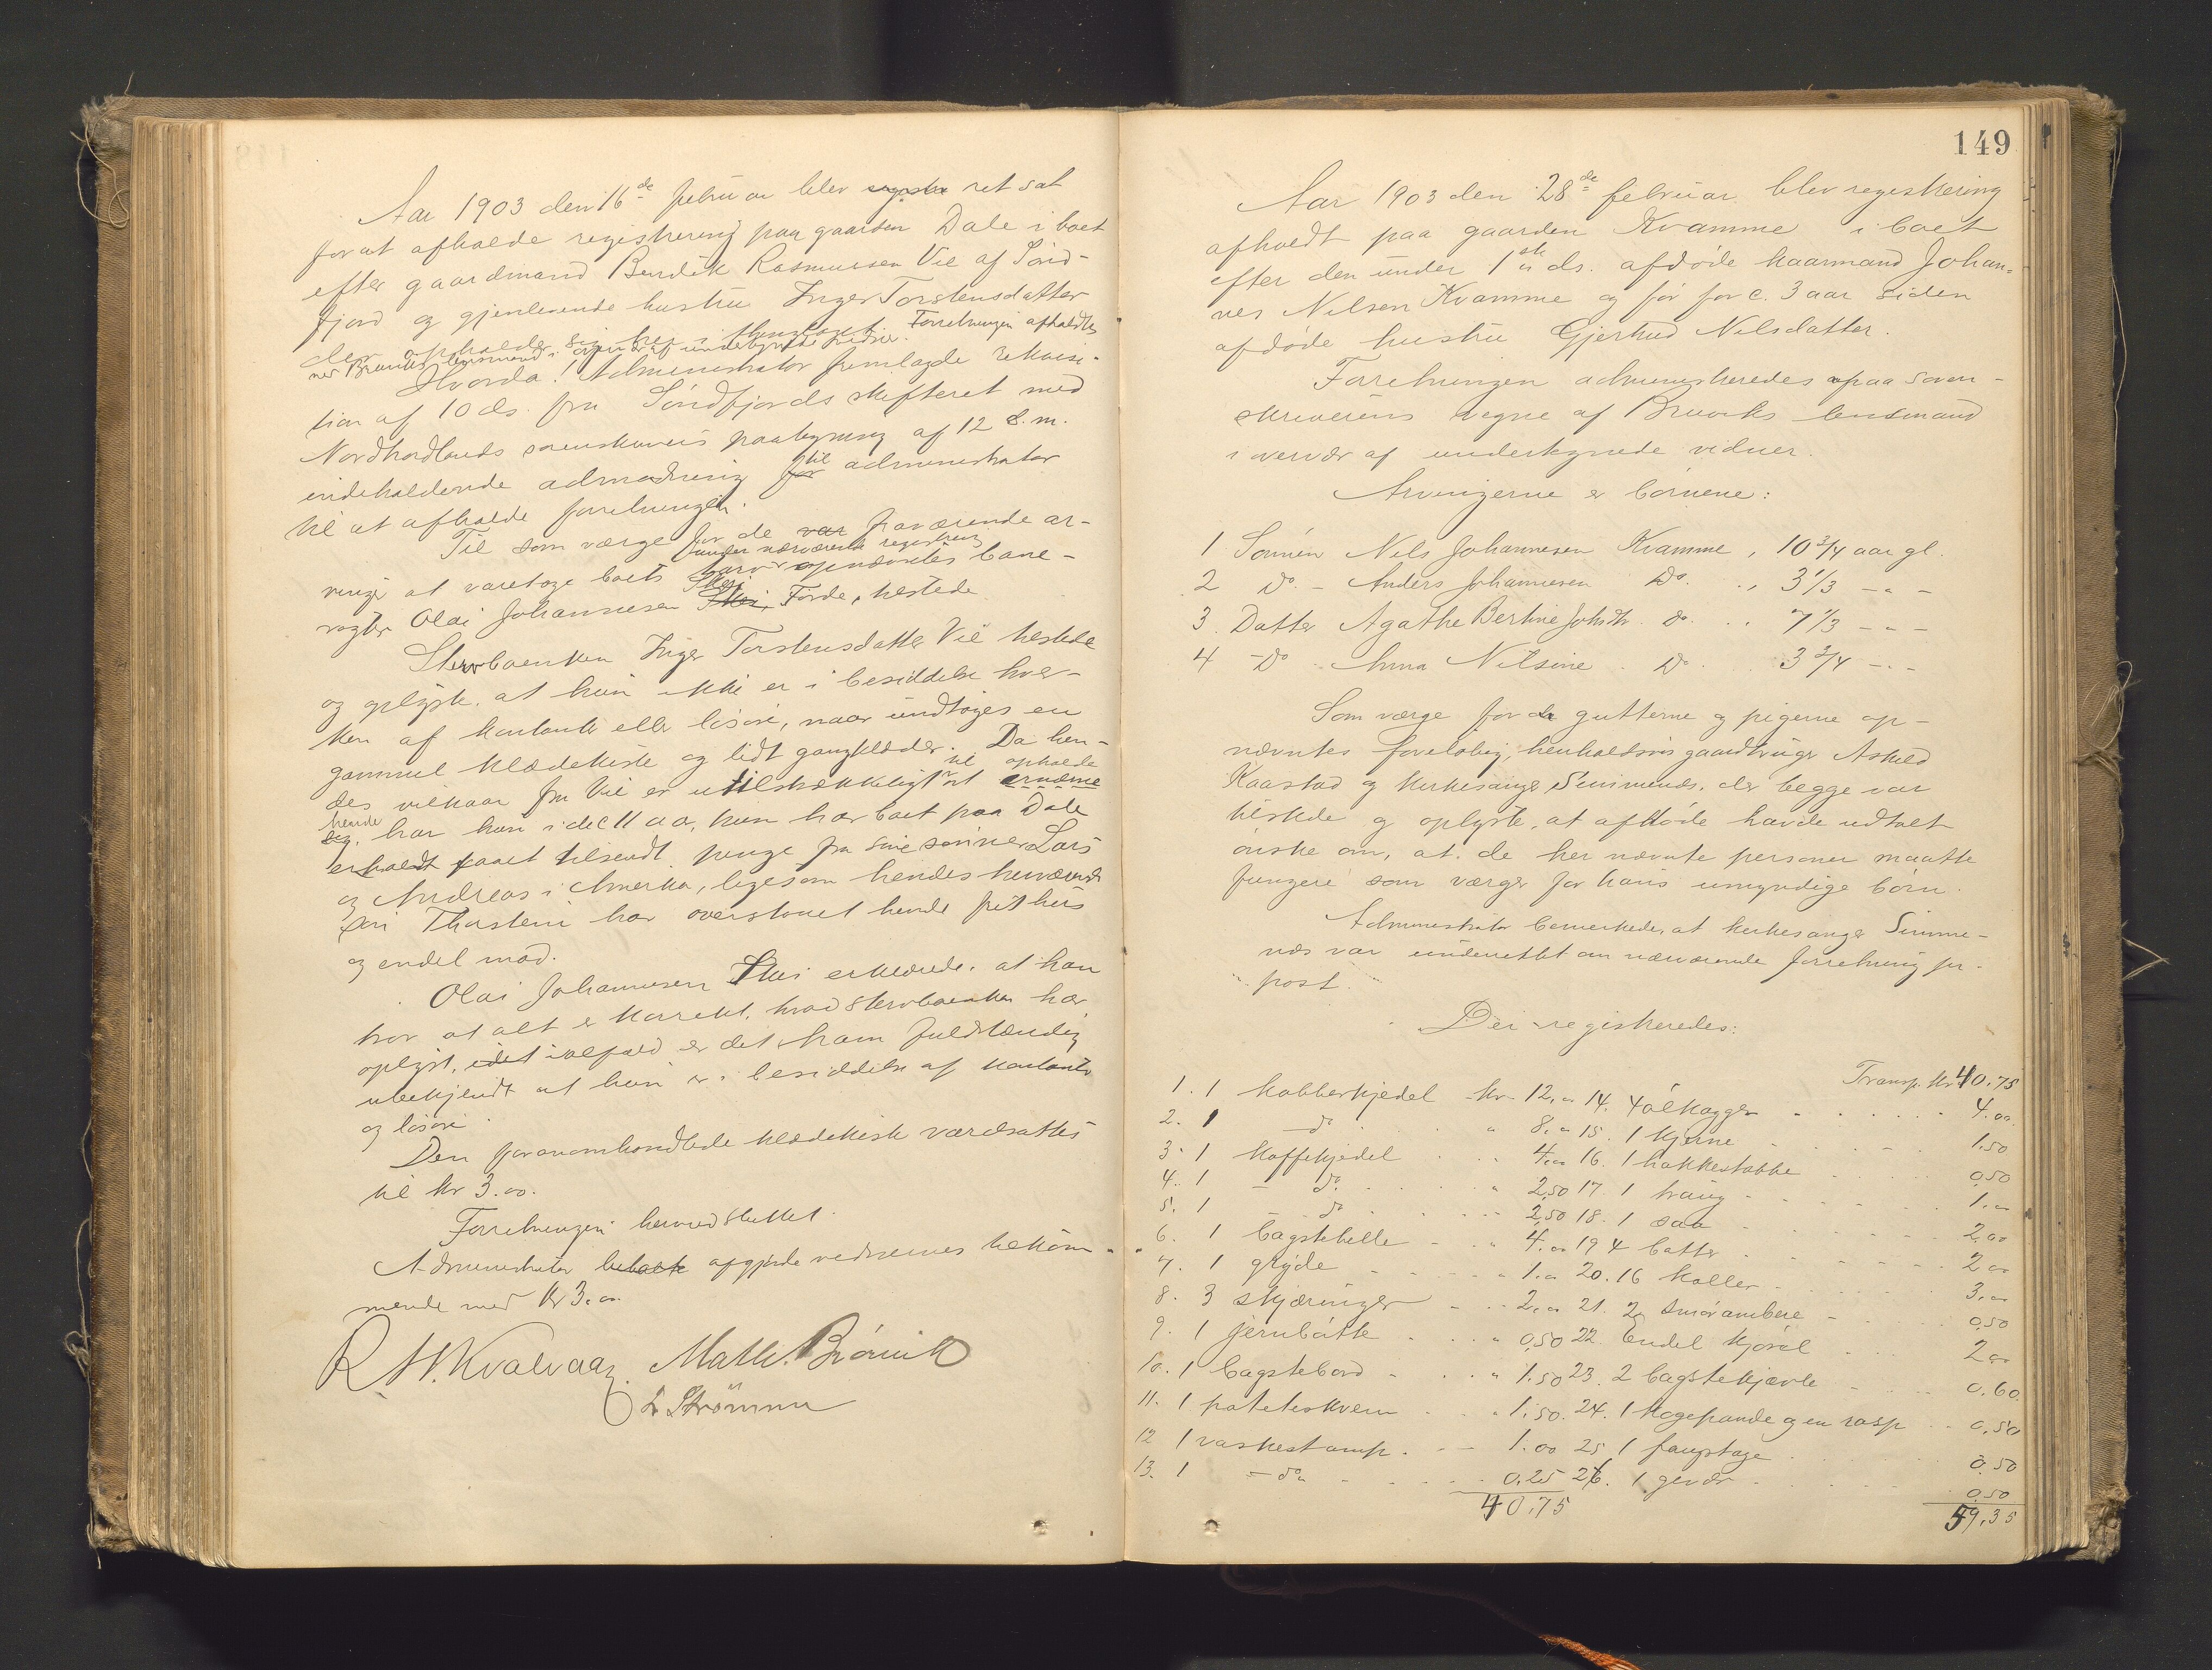 Aar 1903 den 16de februar blev ret sat
for at afholde registrering paa gaarden Dale i boet
efter gaardmand Bendik Rasmussen Vie af Sönd-
fjord og gjenlevende hustru Inger Torstensdatter
der opholder sig her i thinglaget. Forretningen afholdtes
ved Bruviks lensmand i overvær af undertegnede vidner.
Hvorda! Administrator fremlagde rekvisi-
tion af 10 ds. fra Söndfjords skifteret med
Nordhordlands sorenskrivers paategning af 12 s.m.
indeholdende anmodning for til administrator
til at afholde forretningen.
Til som værge for de var fraværende ar-
vinger at varetage boets tarv under nærværende registrering opnævntes bane-
vogter Olai Johannessen Skei Förde, tilstede
Stervboenken Inger Torstensdatter Vie tilstede
og oplyste, at hun ikke er i besiddelse hver-
ken af kontanter eller lösöre, naar undtages en
gammel klædekiste og lidt gangklæder. Da hen-
des vilkaar fra Vie er utilstrækkeligt til at opholde ernærne
sig hende har hun i de 11 aar, hun har boet paa Dale
erholdt faaet tilsendt penge fra sine sönner Lars
og Andreas i Amerika, ligesom hendes herværende
sön Thorstein har overladt hende frit hus
og endel mad.
Olai Johannessen Skei erklærede, at han
tror at alt er korrekt, hvad stervboenken har
oplyst, idet ialfald er det ham fuldstændig
ubekjendt at hun er i besiddelse af kontanter
og lösöre.
Den foranomhandlede klædekiste værdsattes
til kr 3.00.
Forretningen hermed sluttet.
Administrator opgjorde vidnernes tilkom-
mende med kr 3.00
R. H. Kvalvaag. Math. Brörvik
L Strömme
149
Aar 1903 den 28de februar blev registrering
afholdt paa gaarden Kvamme i boet
efter den under 1ste ds. afdöde kaarmand Johan-
nes Nilsen Kvamme og för for c. 3 aar siden
afdöde hustru Gjertrud Nilsdatter.
Forretningen administreredes paa soren-
skriverens vegne af Bruviks lensmand
i overvær af undertegnede vidner.
Arvingerne er börnene:
1 Sönnen Nils Johannesen Kvamme, 10 3/4 aar gl.
2 Do. - Anders Johannesen Do. ., 3 1/3 - " -
3. Datter Agathe Bertine Johsdtr. do. .. 7 1/3 - " -
4 - Do - Anna Nilsine . Do . 3 3/4 - " -
Som værge for de gutterne og pigerne op-
nævntes forelöbig, henholdsvis gaardbruger Askild
Kaastad og kirkesanger Simmenæs, der begge var
tilstede og oplyste, at afdöde havde udtalt
önske om, at de her nævnte personer maatte
fungere som værger for hans umyndige börn.
Administrator bemerkede, at kirkesanger Simme-
næs var underrettet om nærværende forretning pr.
post.
Der registreredes:
Transp. Kr 40.75
1. 1 kobberkjedel kr 12.00 14. 4 ölkagger 4.00
2. 1 - do " 8.00 15. 1 kjerne 1.50
3. 1 kaffekjedel 4.00 16. 1 hakkestabbe 0.50
4. 1 - do. " 2.50 17. 1 traug 1.00
5. 1 do " 2.50 18. 1 saa 2.00
6. 1 bagstehelle " 4.00 19 4 bøtter 2.00
7. 1 gryde " 1.00 20. 16 koller 3.00
8. 3 skjæringer " 2.00 21. 2 smörambere 0.50
9. 1 jernbötte " 0.50 22. Endel kjörel 2.00
10. 1 bagstebord " 1.50 23. 2 bagstekjævle 0.60
11. 1 poteteskvern " 1.50. 24. 1 kogepande og en rasp 0.50
12 1 vaskestamp 1.00 25 1 0.50
13. 1 - do. 0.25 26. 1 gevær 0.50
40.75 59.35